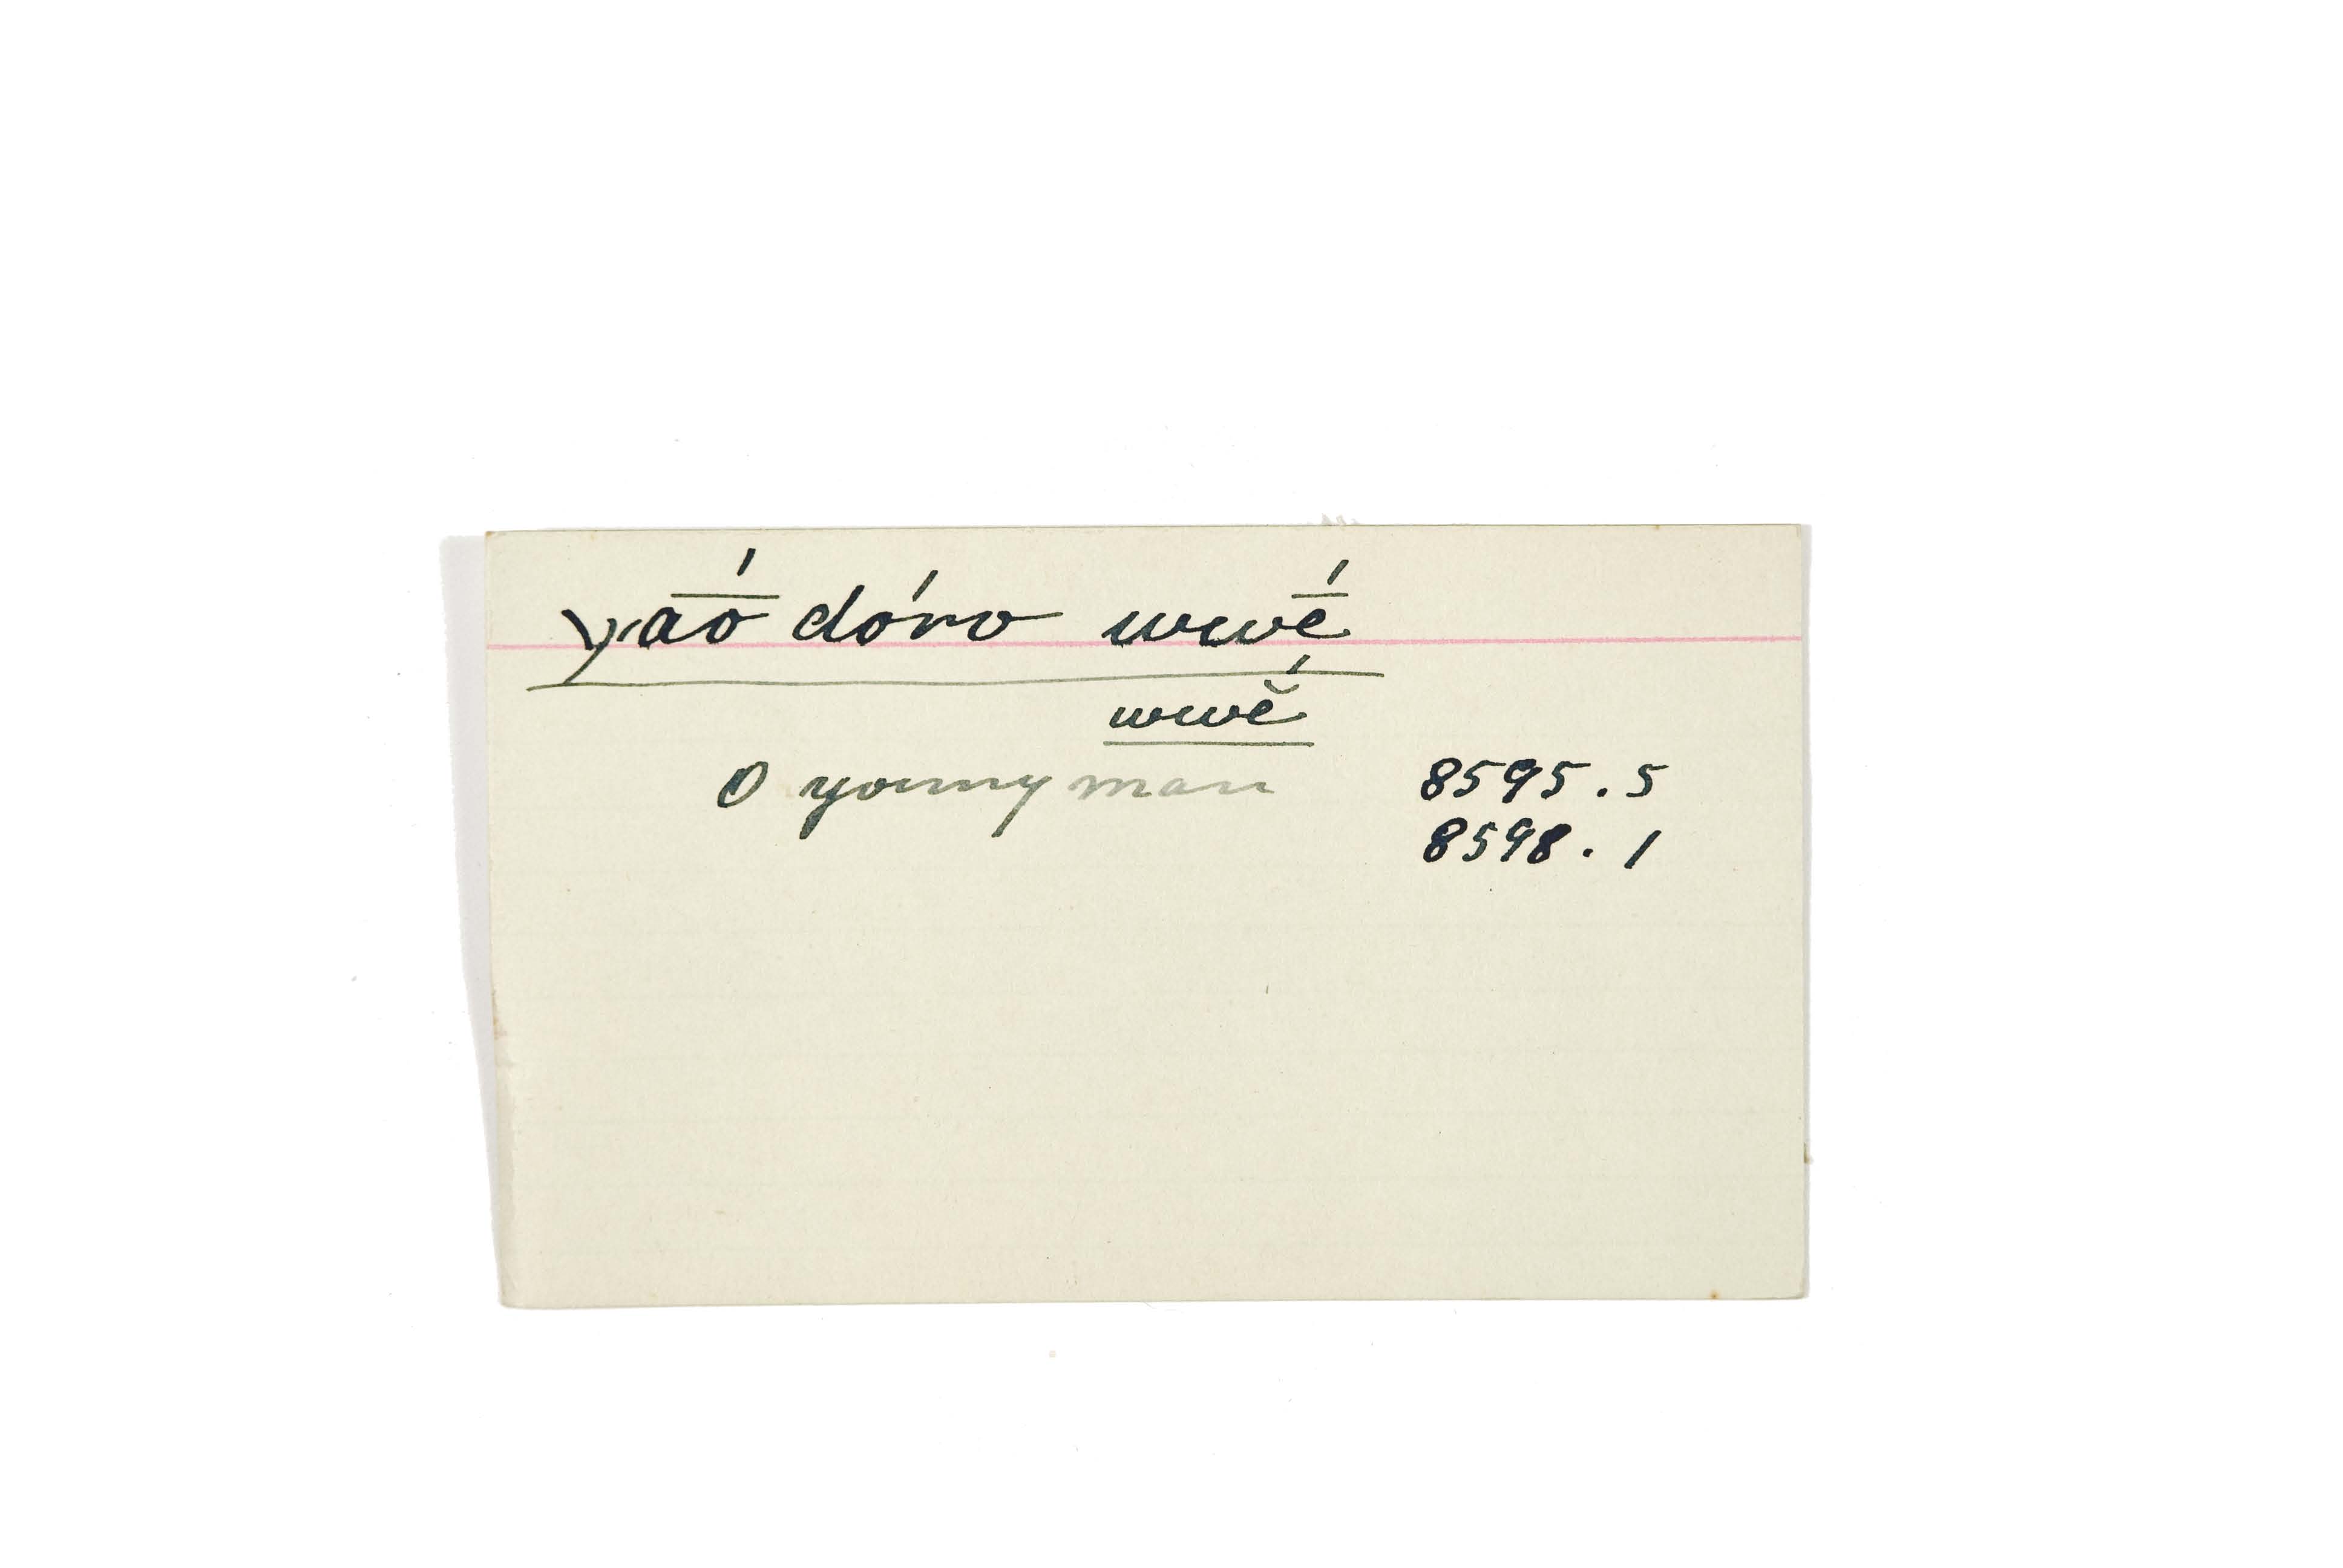 yaṓ dóro wwḗ
wwĕ́
O young man 8595.5
8598.1